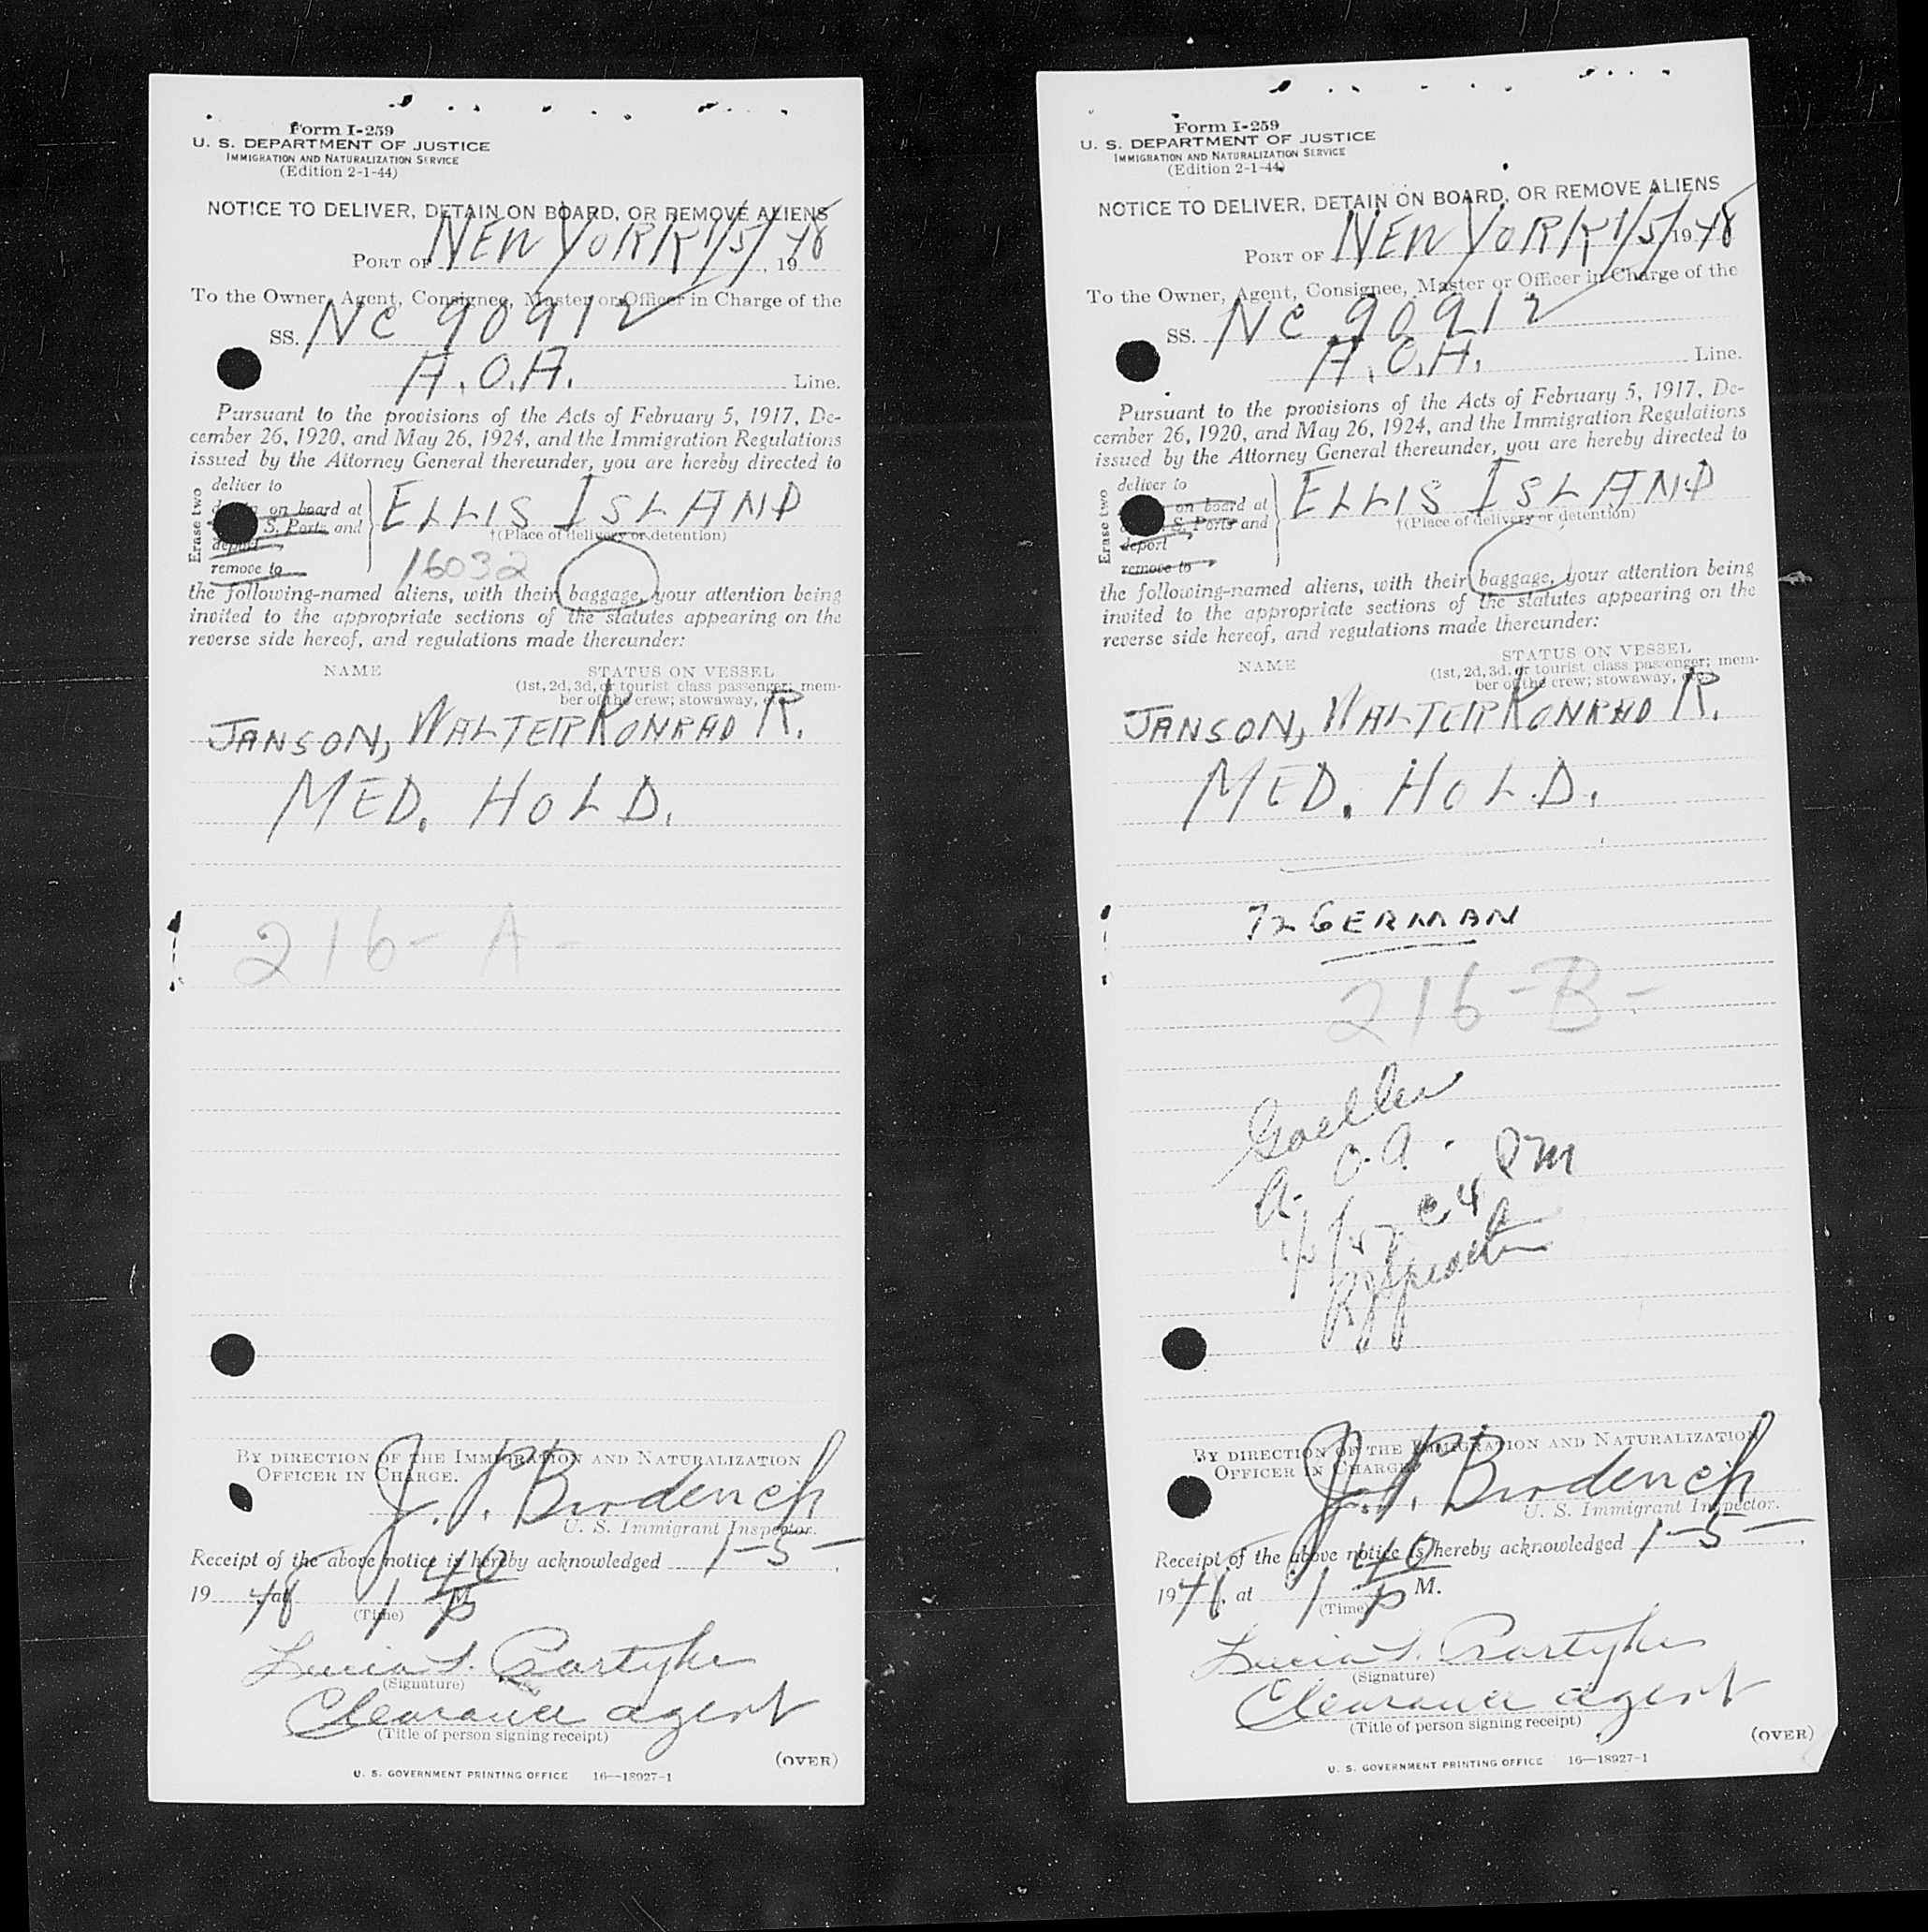 Form I-259
U. S. DEPARTMENT OF JUSTICE
IMMIGRATION AND NATURALIZATION SERVICE
(Edition 2-1-44)
NOTICE TO DELIVER, DETAIN ON BOARD, OR REMOVE ALIENS
PORT OF NEW YORK 1/5/, 1948
To the Owner, Agent, Consignee, Master or Officer in Charge of the
SS. NC 90912
A.O.A. Line.
Pursuant to the provisions of the Acts of February 5, 1917, De-
cember 26, 1920, and May 26, 1924, and the Immigration Regulations
issued by the Attorney General thereunder, you are hereby directed to
Erase two
deliver to
on board at
S. Ports and
deport
remove to
ELLIS ISLAND
†(Place of delivery or detention)
16032
the following-named aliens, with their baggage, your attention being
invited to the appropriate sections of the statutes appearing on the
reverse side hereof, and regulations made thereunder:
NAME STATUS ON VESSEL
(1st, 2d, 3d, or tourist class passenger; mem-
ber of the crew; stowaway, etc.)
JANSON, WALTER KONRAD R.
MED. HOLD.
216- A -
BY DIRECTION OF THE IMMIGRATION AND NATURALIZATION
OFFICER IN CHARGE.
J. P.
U. S. Immigrant Inspector.
Receipt of the above notice is hereby acknowledged 1-5-,
1948, at 1 40 P M.
(Time)
(Signature)
Clearance agent
(Title of person signing receipt)
(OVER)
U. S. GOVERNMENT PRINTING OFFICE 16—18927-1
Form I-259
U. S. DEPARTMENT OF JUSTICE
IMMIGRATION AND NATURALIZATION SERVICE
(Edition 2-1-44)
NOTICE TO DELIVER, DETAIN ON BOARD, OR REMOVE ALIENS
PORT OF NEW YORK 1/5/1948
To the Owner, Agent, Consignee, Master or Officer in Charge of the
SS. NC 90912
A.O.A. Line.
Pursuant to the provisions of the Acts of February 5, 1917, De-
cember 26, 1920, and May 26, 1924, and the Immigration Regulations
issued by the Attorney General thereunder, you are hereby directed to
Erase two
deliver to
on board at
S. Ports and
deport
remove to
ELLIS ISLAND
†(Place of delivery or detention)
the following-named aliens, with their baggage, your attention being
invited to the appropriate sections of the statutes appearing on the
reverse side hereof, and regulations made thereunder:
NAME STATUS ON VESSEL
(1st, 2d, 3d, or tourist class passenger; mem-
ber of the crew; stowaway, etc.)
JANSON, WALTER KONRAD R.
MED. HOLD.
72 GERMAN
216 - B -
A. O. A.
4 PM
BY DIRECTION OF THE IMMIGRATION AND NATURALIZATION
OFFICER IN CHARGE.
J. P.
U. S. Immigrant Inspector.
Receipt of the above notice is hereby acknowledged 1-5-,
1948, at 1 40 P M.
(Time)
(Signature)
Clearance agent
(Title of person signing receipt)
(OVER)
U. S. GOVERNMENT PRINTING OFFICE 16—18927-1